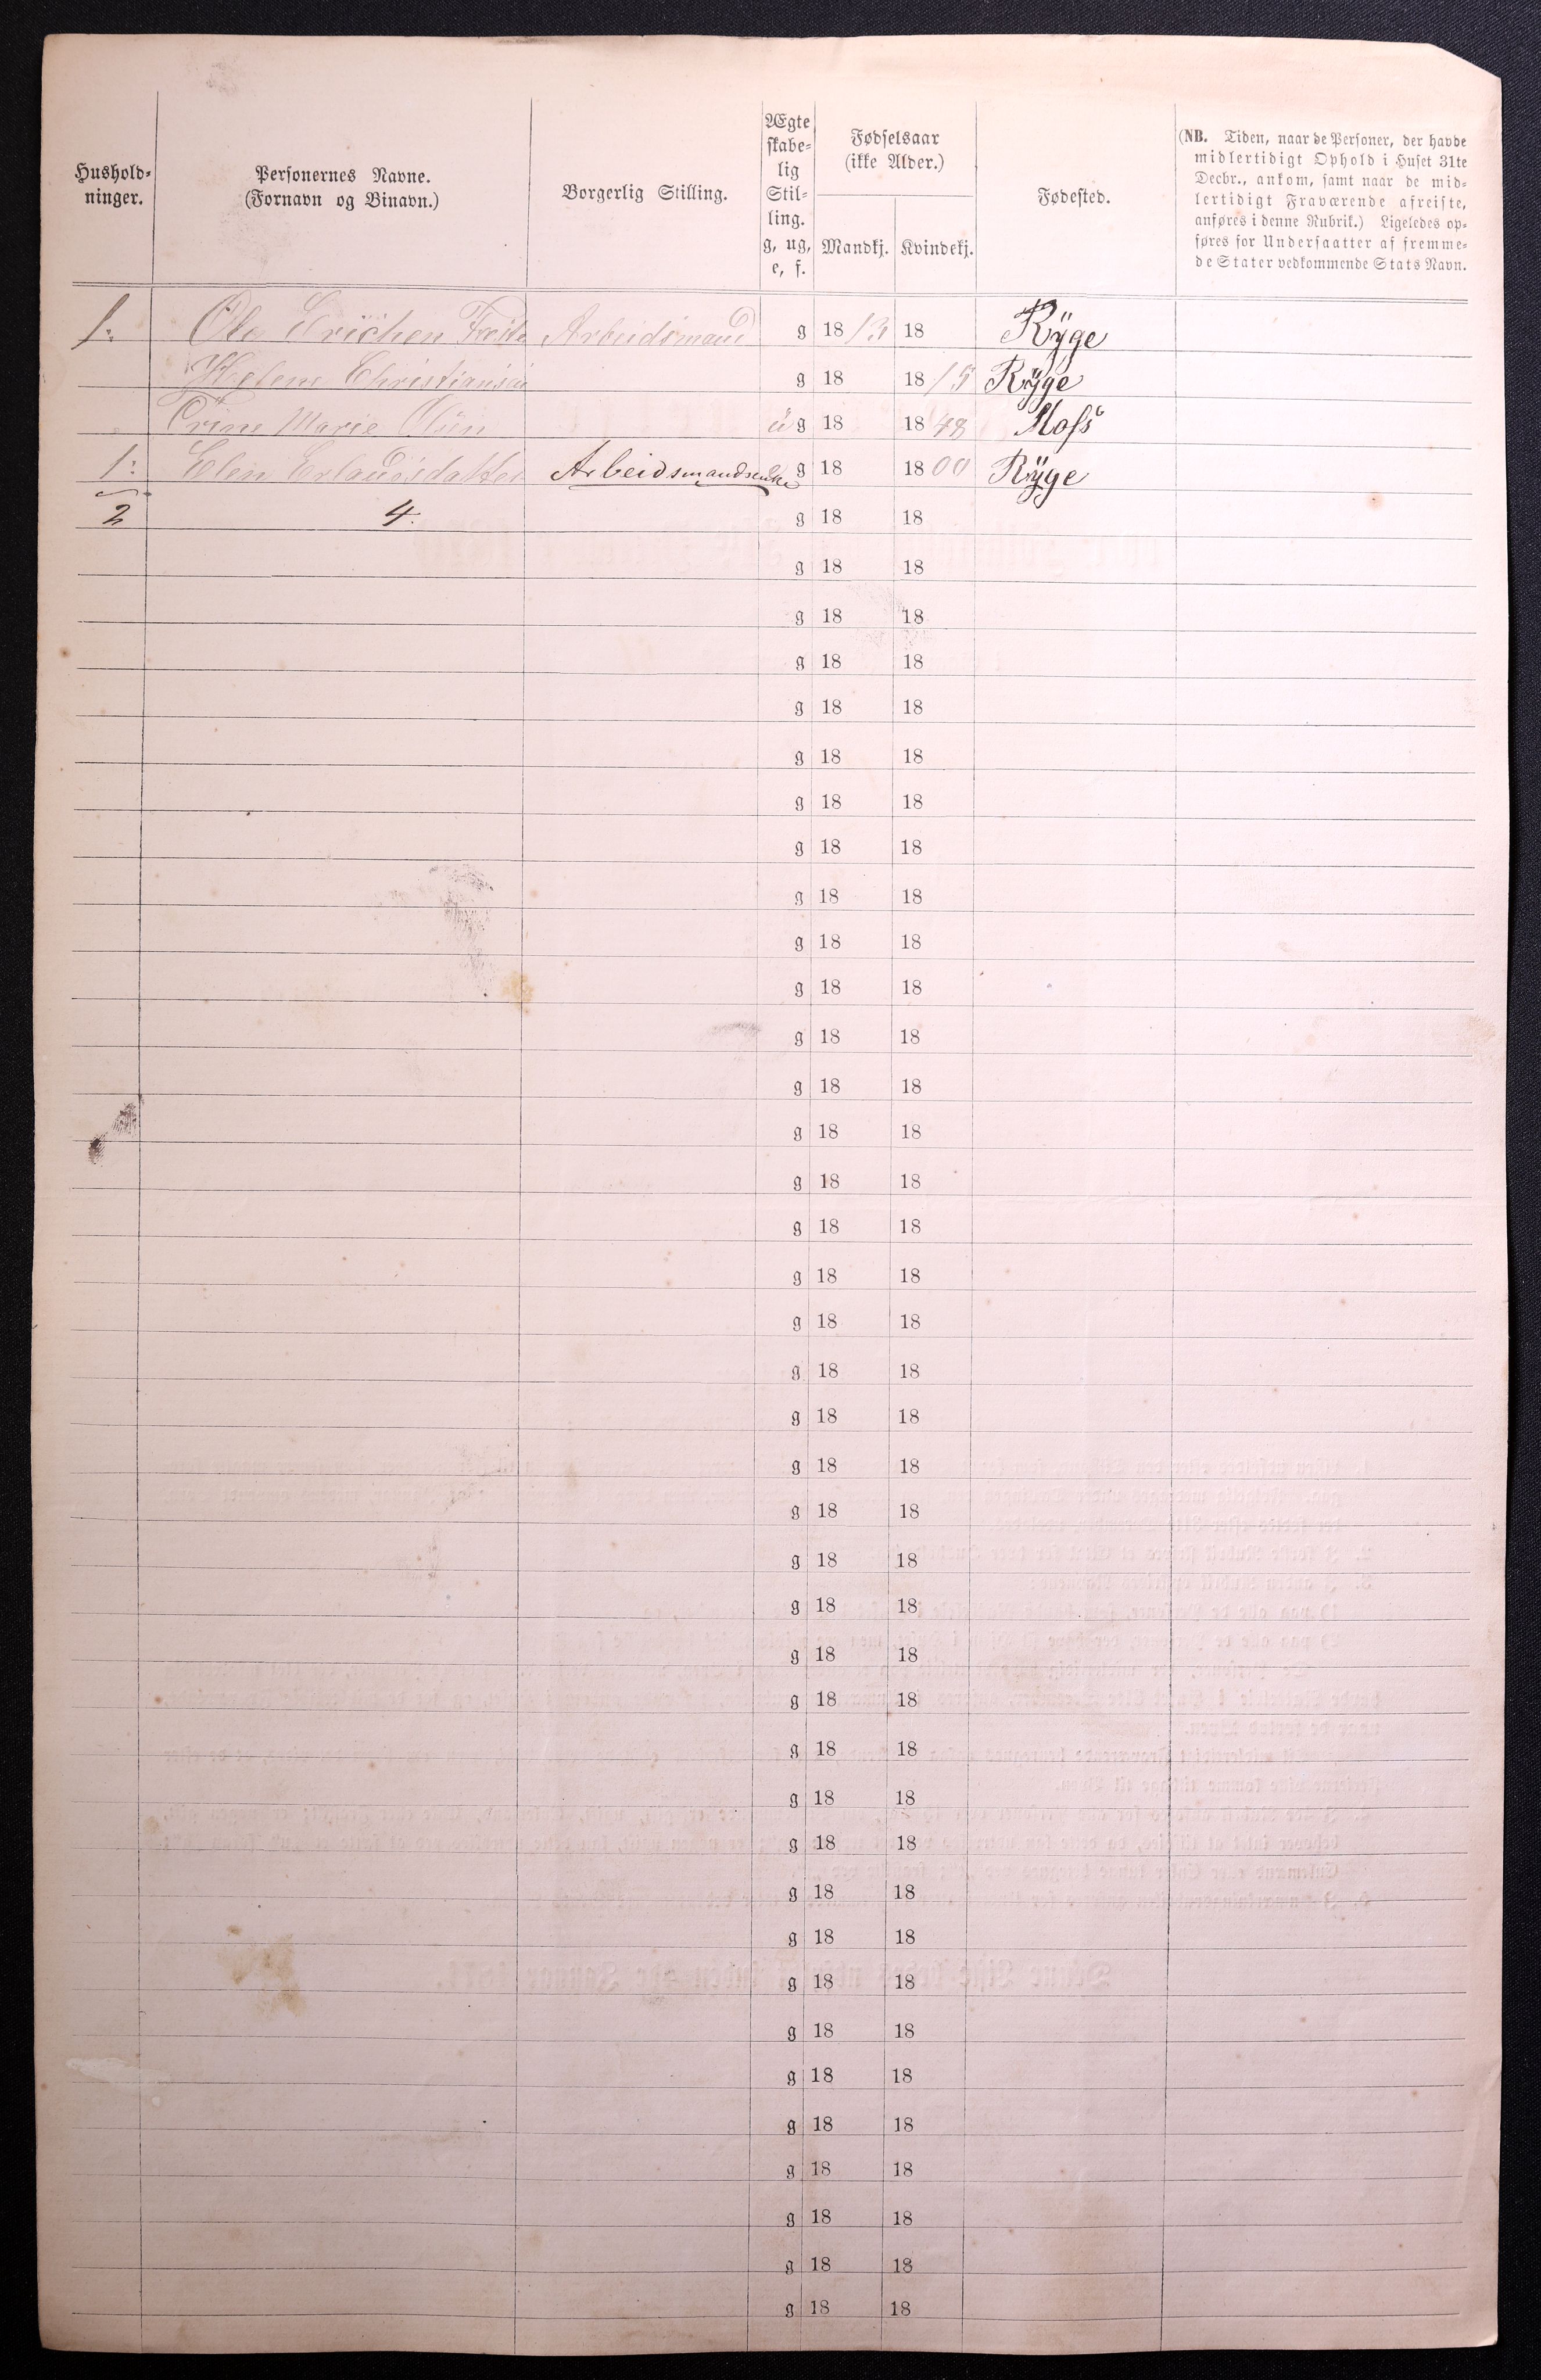 Hushold-
ninger.
Personernes Navne.
(Fornavn og Binavn.)
Borgerlig Stilling.
Ægte
skabe-
lig
Stil-
ling.
g, ug,
e, f.
Fødselsaar
(ikke Alder.)
Mandkj. Kvindekj.
Fødested.
(NB. Tiden, naar de Personer, der havde
midlertidigt Ophold i Huset 31te
Decbr., ankom, samt naar de mid-
lertidigt Fraværende afreiste,
anføres i denne Rubrik.) Ligeledes op-
føres for Undersaatter af fremme-
de Stater vedkommende Stats Navn.
1. Ole Erichen Arbeidsmand g 18 13 18 Rÿge
Helene g 18 18 15 Rÿge
Marie Olsen ug 18 18 48 Moss
1. Elen Erlandsdatter Arbeidsmandsenke g 18 18 00 Rÿge
2 4. g 18 18
g 18 18
g 18 18
g 18 18
g 18 18
g 18 18
g 18 18
g 18 18
g 18 18
g 18 18
g 18 18
g 18 18
g 18 18
g 18 18
g 18 18
g 18 18
g 18 18
g 18 18
g 18 18
g 18 18
g 18 18
g 18 18
g 18 18
g 18 18
g 18 18
g 18 18
g 18 18
g 18 18
g 18 18
g 18 18
g 18 18
g 18 18
g 18 18
g 18 18
g 18 18
g 18 18
g 18 18
g 18 18
g 18 18